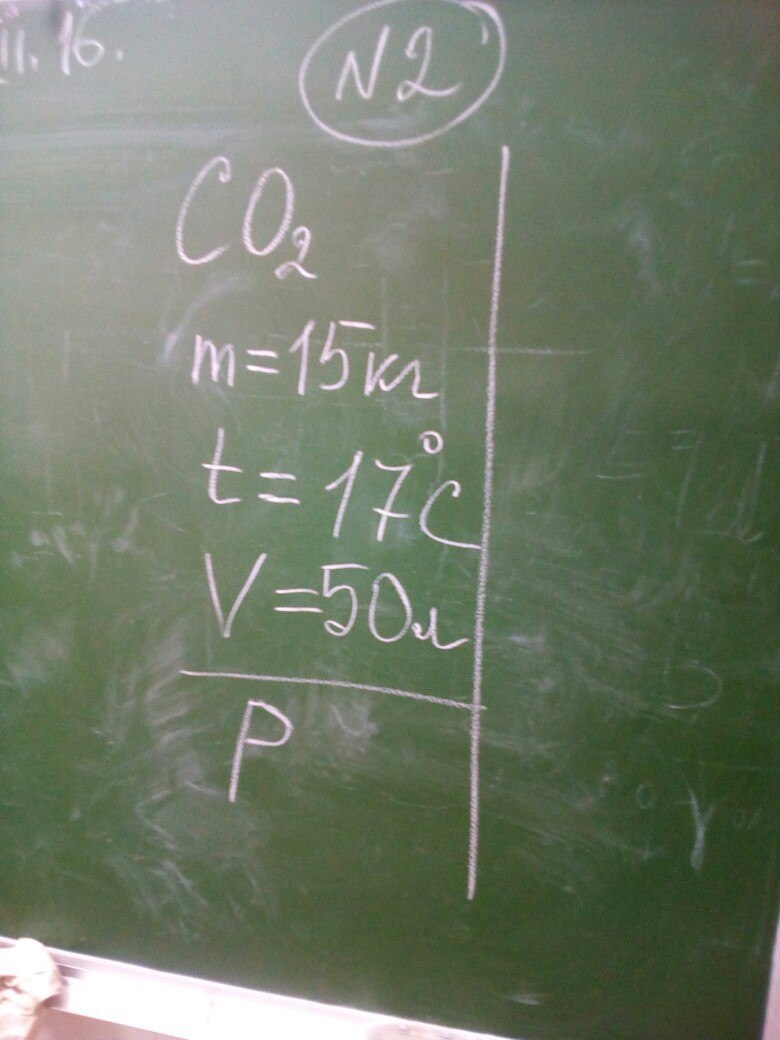 II.16.
N2
CO₂
m=15кг
t=17°C
V=50л
P